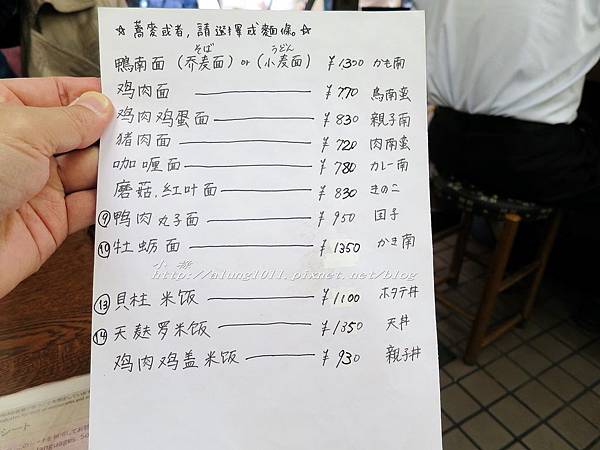 ☆蕎麦或者,請选擇或麵條☆
そば うどん
鴨南面 (乔麦面) or (小麦面) ¥1300 かも南
鸡肉面 ¥770 鳥南蛮
鸡肉鸡蛋面 ¥830 親子南
猪肉面 ¥720 肉南蛮
咖喱面 ¥780 カレー南
磨菇.红叶面 ¥830 きのこ
⑨ 鸭肉丸子面 ¥950 団子
⑩ 牡蛎面 ¥1350 かき南
http://alung1011.pixnet.net/blog
⑬ 貝柱 米饭 ¥1100 ホタテ丼
⑭ 天麸罗米饭 ¥1350 天丼
鸡肉鸡盖米饭 ¥930 親子丼
シート